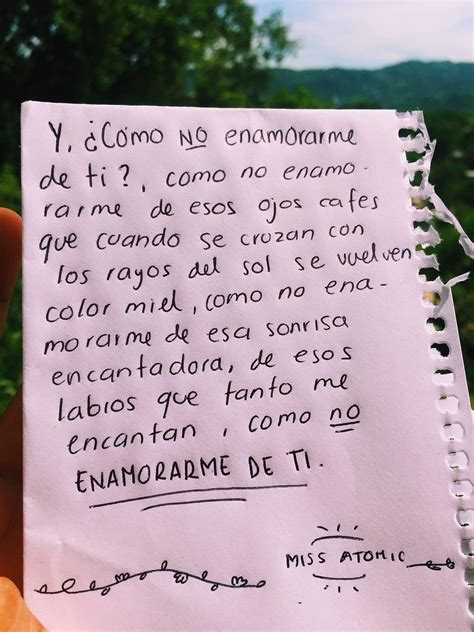 Y, ¿Cómo NO enamorarme
de ti?, como no enamo-
rarme de esos ojos cafes
que cuando se cruzan con
los rayos del sol se vuelven
color miel, como no ena-
morarme de esa sonrisa
encantadora, de esos
labios que tanto me
encantan, como no
ENAMORARME DE TI.
MISS ATOMIC